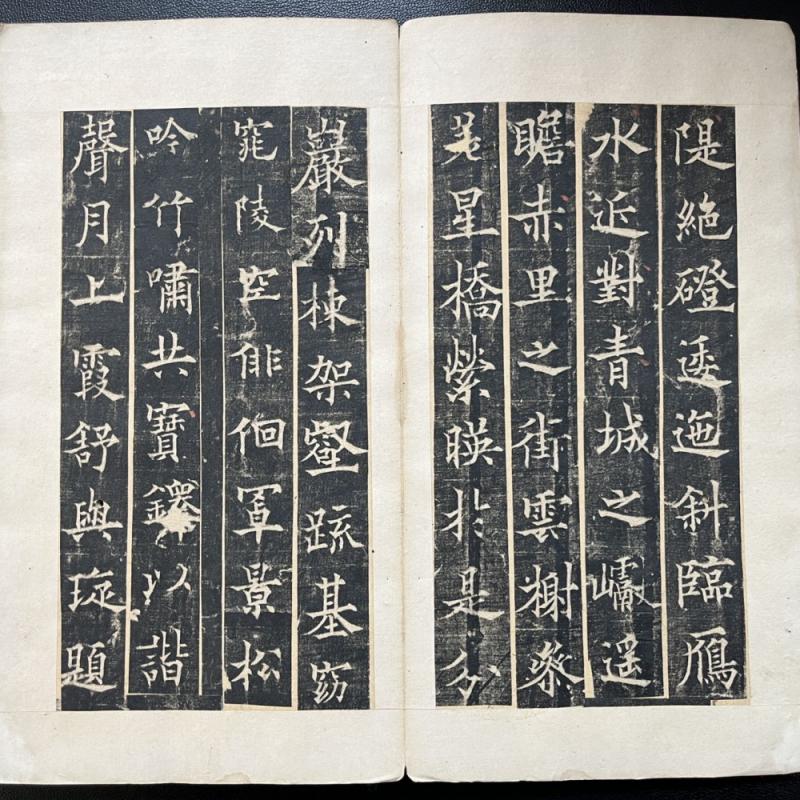 隄絶磴逶迤斜臨鴈
水近對青城之巘遥
瞻赤里之街雲榭叅
差星橋縈暎於是分
巖列棟架壑疏基窈
窕陵空俳佪罩景松
吟竹嘯共寶鐸以諧
聲月上霞舒與琁題